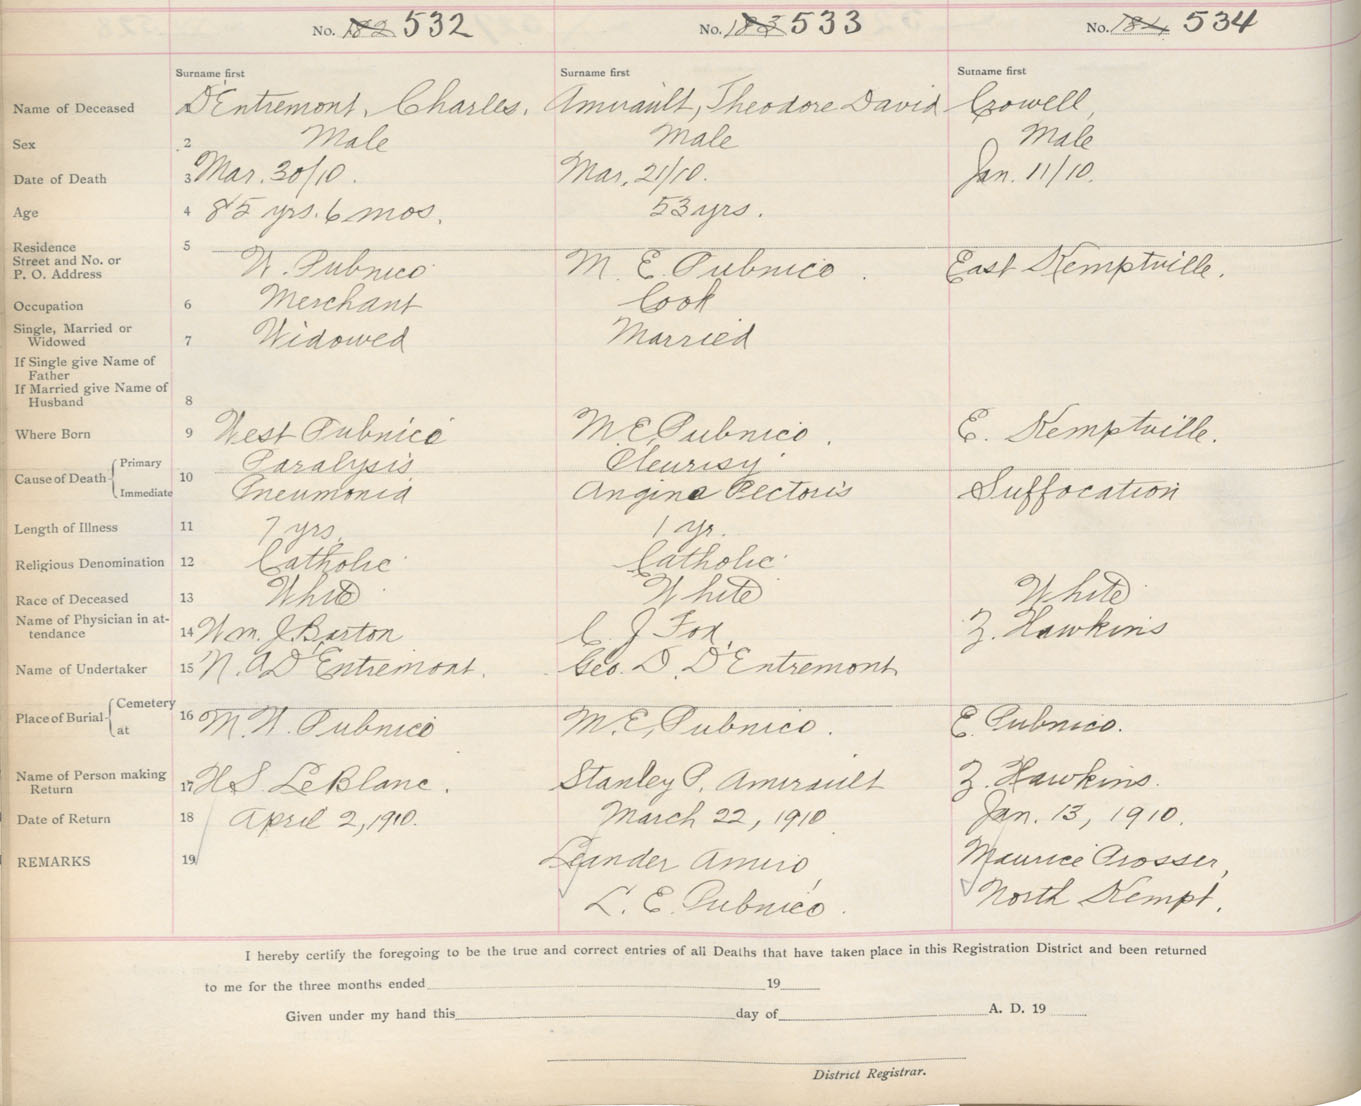 No. 182 532 No. 183 533 No. 184 534
Surname first Surname first Surname first
Name of Deceased D'Entremont, Charles. Amirault, Theodore David Crowell,
Sex 2 Male Male Male
Date of Death 3 Mar. 30/10. Mar. 21/10. Jan. 11/10.
Age 4 85 yrs. 6 mos. 53 yrs.
Residence 5
Street and No. or
P. O. Address W. Pubnico M. E. Pubnico. East Kemptville.
Occupation 6 Merchant Cook
Single, Married or
Widowed 7 Widowed Married
If Single give Name of
Father
If Married give Name of
Husband 8
Where Born 9 West Pubnico M. E. Pubnico. E. Kemptville.
Cause of Death Primary 10 Paralysis Pleurisy
Immediate Pneumonia Angina Pectoris Suffocation
Length of Illness 11 7 yrs. 1 yr.
Religious Denomination 12 Catholic Catholic
Race of Deceased 13 White White White
Name of Physician in at-
tendance 14 Wm. J. Barton C. J. Fox. Z. Hawkins
Name of Undertaker 15 N. A D'Entremont. Geo. D. D'Entremont
Place of Burial Cemetery 16
at M. W. Pubnico M. E. Pubnico. E. Pubnico.
Name of Person making
Return 17 H S. LeBlanc. Stanley P. Amirault Z. Hawkins.
Date of Return 18 April 2, 1910. March 22, 1910 Jan. 13, 1910.
REMARKS 19 Leander Amiro, Maurice Prosser,
L. E. Pubnico. North Kempt.
I hereby certify the foregoing to be the true and correct entries of all Deaths that have taken place in this Registration District and been returned
to me for the three months ended 19
Given under my hand this day of A. D. 19
District Registrar.